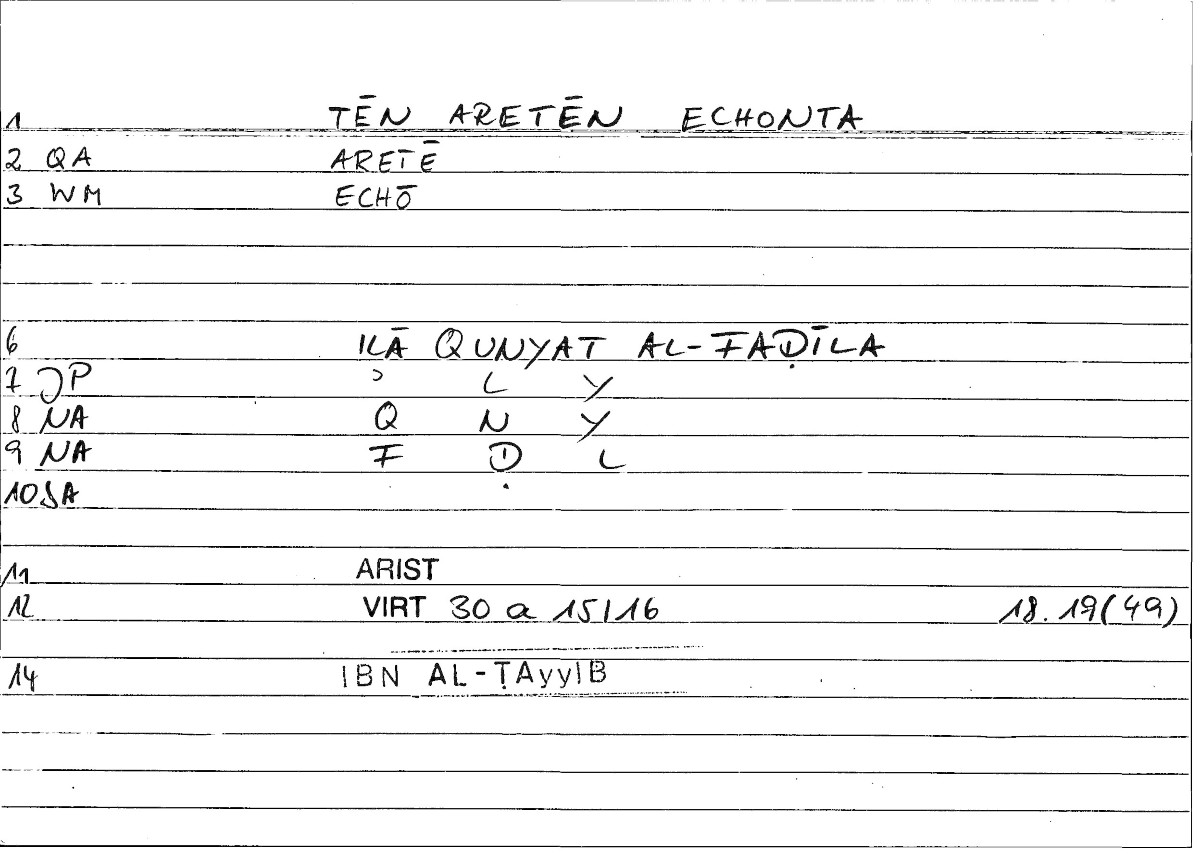 1 TĒN ARETĒN ECHONTA
2 QA ARETĒ
3 WM ECHŌ
6 ILĀ QUNYAT AL-FAḌĪLA
7 JP ʾ L Y
8 NA Q N Y
9 NA F Ḍ L
10 SA
11 ARIST
12 VIRT 30 a 15/16 18.19(49)
14 IBN AL-ṬAyyIB